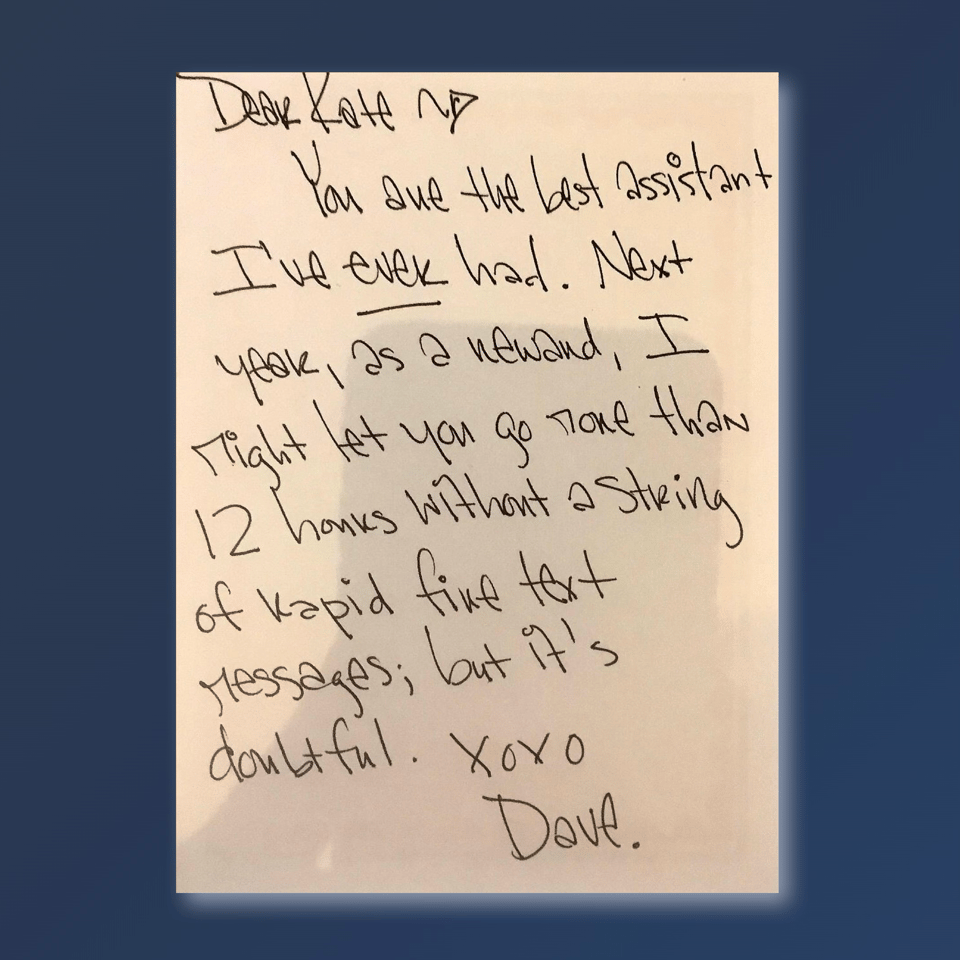 Dear Kate
You are the best assistant
I've ever had. Next
year, as a reward, I
might let you go more than
12 hours without a string
of rapid fire text
messages; but it's
doubtful. XOXO
Dave.